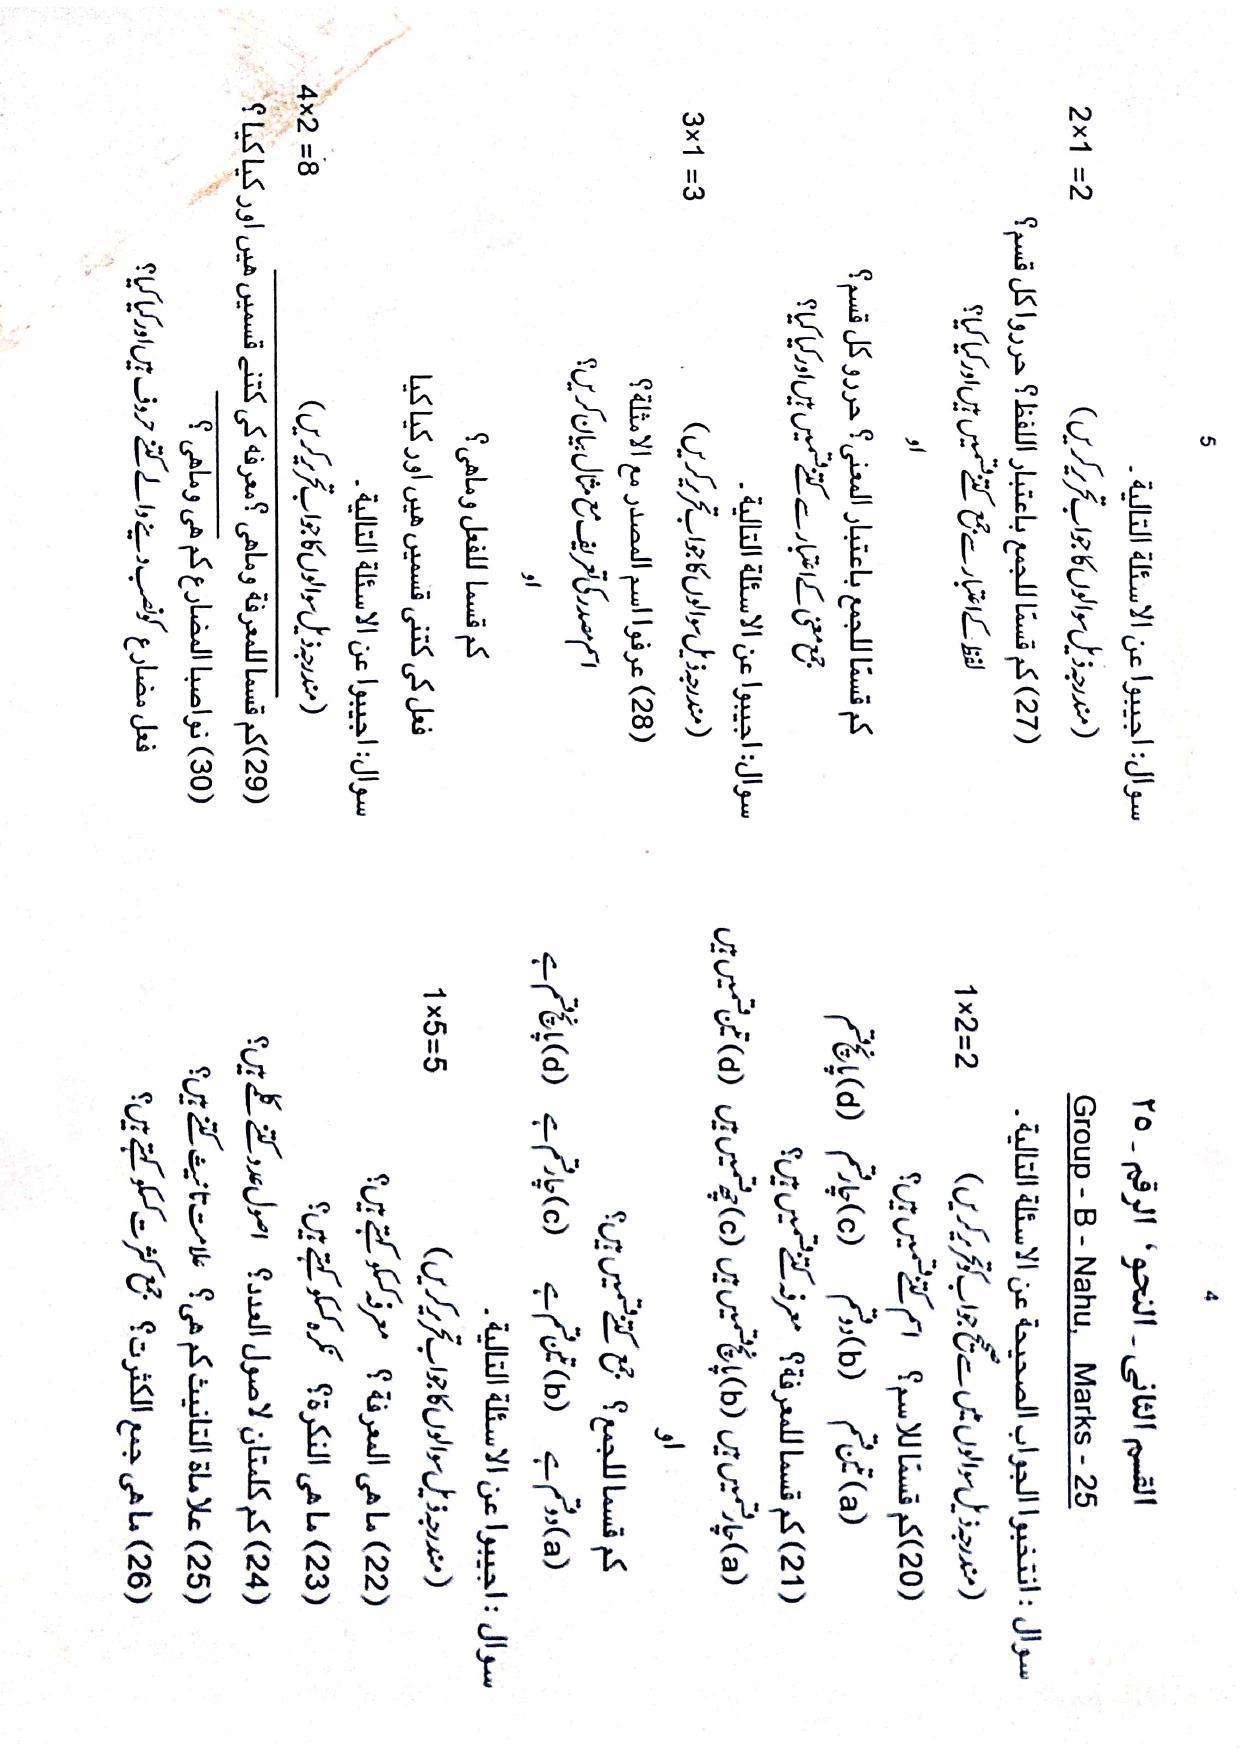 4
القسم الثانی ۔ النحو، الرقم ۔ ۲۵
Group - B - Nahu,   Marks - 25
سوال : انتخبوا الجواب الصحیحة عن الاسئلة التالیة ۔
(مندرجہ ذیل سوالوں میں سے صحیح جواب کو تحریر کریں)   1×2=2
(20) کم قسمًا للاسم؟   اسم کتنے قسمیں ہیں؟
(a) تین قسم   (b) دو قسم   (c) چار قسم   (d) پانچ قسم
(21) کم قسما للمعرفة؟   معرفہ کتنے قسمیں ہیں؟
(a) چار قسمیں ہیں (b) پانچ قسمیں ہیں (c) چھ قسمیں ہیں (d) تین قسمیں ہیں
او
کم قسما للجمع؟   جمع کتنے قسمیں ہیں؟
(a) دو قسم ہے   (b) تین قسم ہے   (c) چار قسم ہے   (d) پانچ قسم ہے
سوال : اجیبوا عن الاسئلة التالیة ۔
(مندرجہ ذیل سوالوں کا جواب تحریر کریں)   1×5=5
(22) ما هی المعرفة ؟   معرفہ کسکو کہتے ہیں؟
(23) ما هی النکرة؟   نکرہ کسکو کہتے ہیں؟
(24) کم کلمتان لاصول العدد؟   اصول عدد کتنے کلمے ہیں؟
(25) علاماة التانیث کم هی ؟   علامت تانیث کتنے ہیں؟
(26) ما هی جمع الکثرت؟   جمع کثرت کسکو کہتے ہیں؟
5
سوال: اجیبوا عن الاسئلة التالیة ۔
(مندرجہ ذیل سوالوں کا جواب تحریر کریں)   2×1 =2
(27) کم قسمًا للجمع باعتبار اللفظ؟ حرروا کل قسم؟
لفظ کے اعتبار سے جمع کتنے قسمیں ہیں اور کیا کیا؟
او
کم قسمًا للجمع باعتبار المعنی؟ حررو کل قسم؟
جمع معنی کے اعتبار سے کتنے قسمیں ہیں اور کیا کیا؟
سوال: اجیبوا عن الاسئلة التالیة ۔
(مندرجہ ذیل سوالوں کا جواب تحریر کریں)   3×1 =3
(28) عرفوا اسم المصدر مع الامثلة؟
اسم مصدر کی تعریف مع مثال بیان کریں؟
او
کم قسما للفعل وماهی ؟
فعل کی کتنی قسمیں هیں اور کیا کیا
سوال: اجیبوا عن الاسئلة التالیة ۔
(مندرجہ ذیل سوالوں کا جواب تحریر کریں)   4×2 =8
(29) کم قسما للمعرفة وماهی ؟ معرفه کی کتنے قسمیں هیں اور کیا کیا ؟
(30) نواصبا المضارع کم هی وماهی ؟
فعل مضارع کو نصب دینے والے کتنے حروف ہیں اور کیا کیا؟